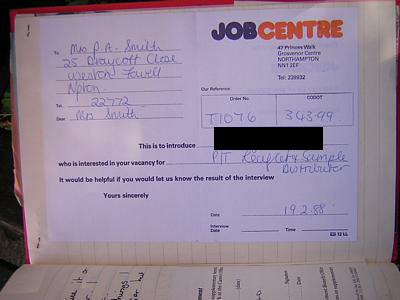 JOBCENTRE
47 Princes Walk
Grosvenor Centre
NORTHAMPTON
NN1 2EF
Tel: 239932
To Mrs P.A. Smith
25 Draycott Close
Weston Favell
Npton.
Tel. 22772
Dear Mrs Smith
Our Reference:
Order No. CODOT
T1076 343.99
This is to introduce
who is interested in your vacancy for P/T Leaflet & Sample
Distributor
It would be helpful if you would let us know the result of the interview
Yours sincerely
Date 19.2.88
Interview
Date Time
ES 12 LL